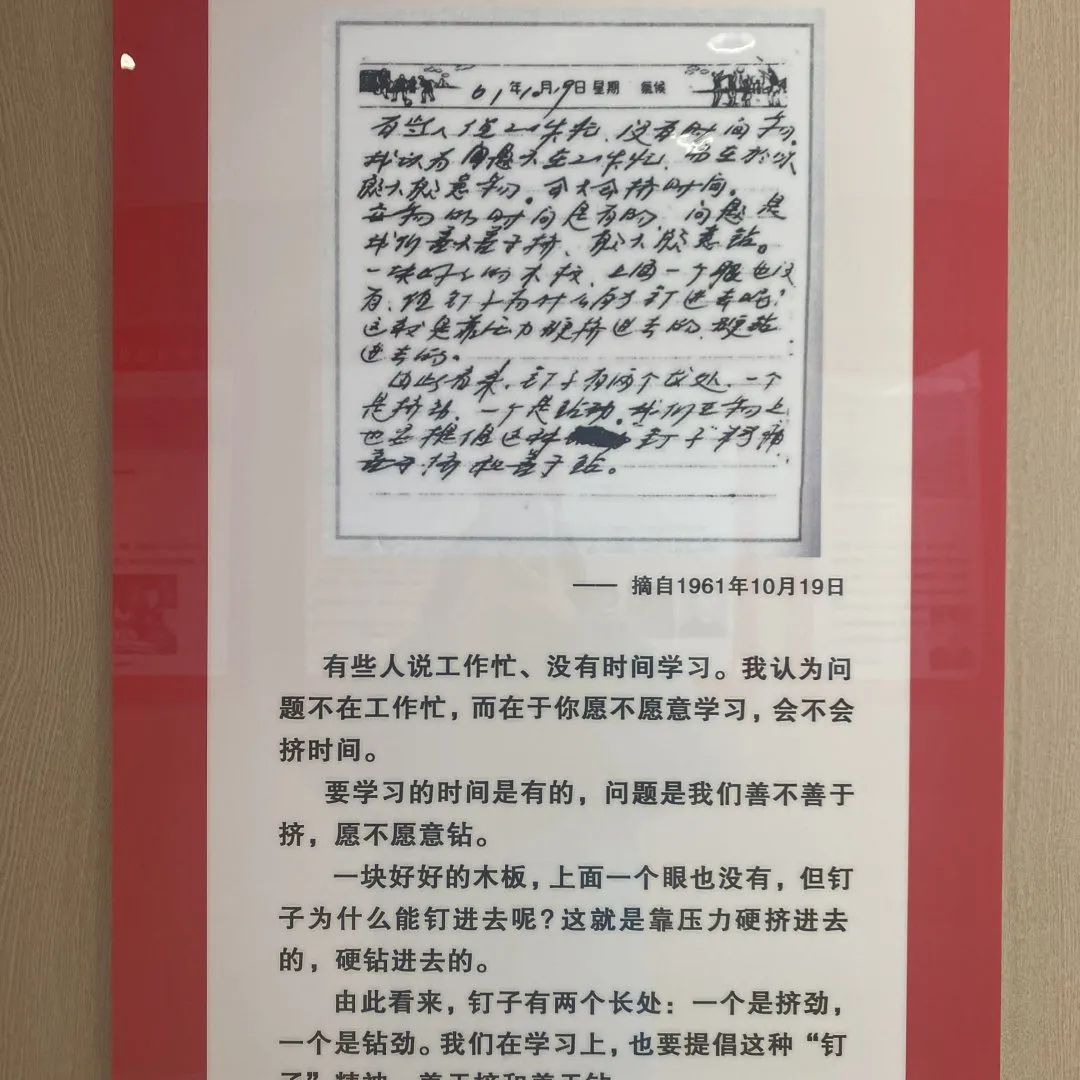 61年10月19日 星期 气候
有些人说工作忙、没有时间学习。
我认为问题不在工作忙,而在于你
愿不愿意学习,会不会挤时间。
要学习的时间是有的,问题是
我们善不善于挤、愿不愿意钻。
一块好好的木板,上面一个眼也没
有,但钉子为什么能钉进去呢?
这就是靠压力硬挤进去的,硬钻
进去的。
由此看来,钉子有两个长处,一个
是挤劲,一个是钻劲。我们在学习上
也要提倡这种 钉子精神,
善于挤和善于钻。
—— 摘自1961年10月19日
有些人说工作忙、没有时间学习。我认为问
题不在工作忙,而在于你愿不愿意学习,会不会
挤时间。
要学习的时间是有的,问题是我们善不善于
挤,愿不愿意钻。
一块好好的木板,上面一个眼也没有,但钉
子为什么能钉进去呢?这就是靠压力硬挤进去
的,硬钻进去的。
由此看来,钉子有两个长处:一个是挤劲,
一个是钻劲。我们在学习上,也要提倡这种“钉
子”精神,善于挤和善于钻